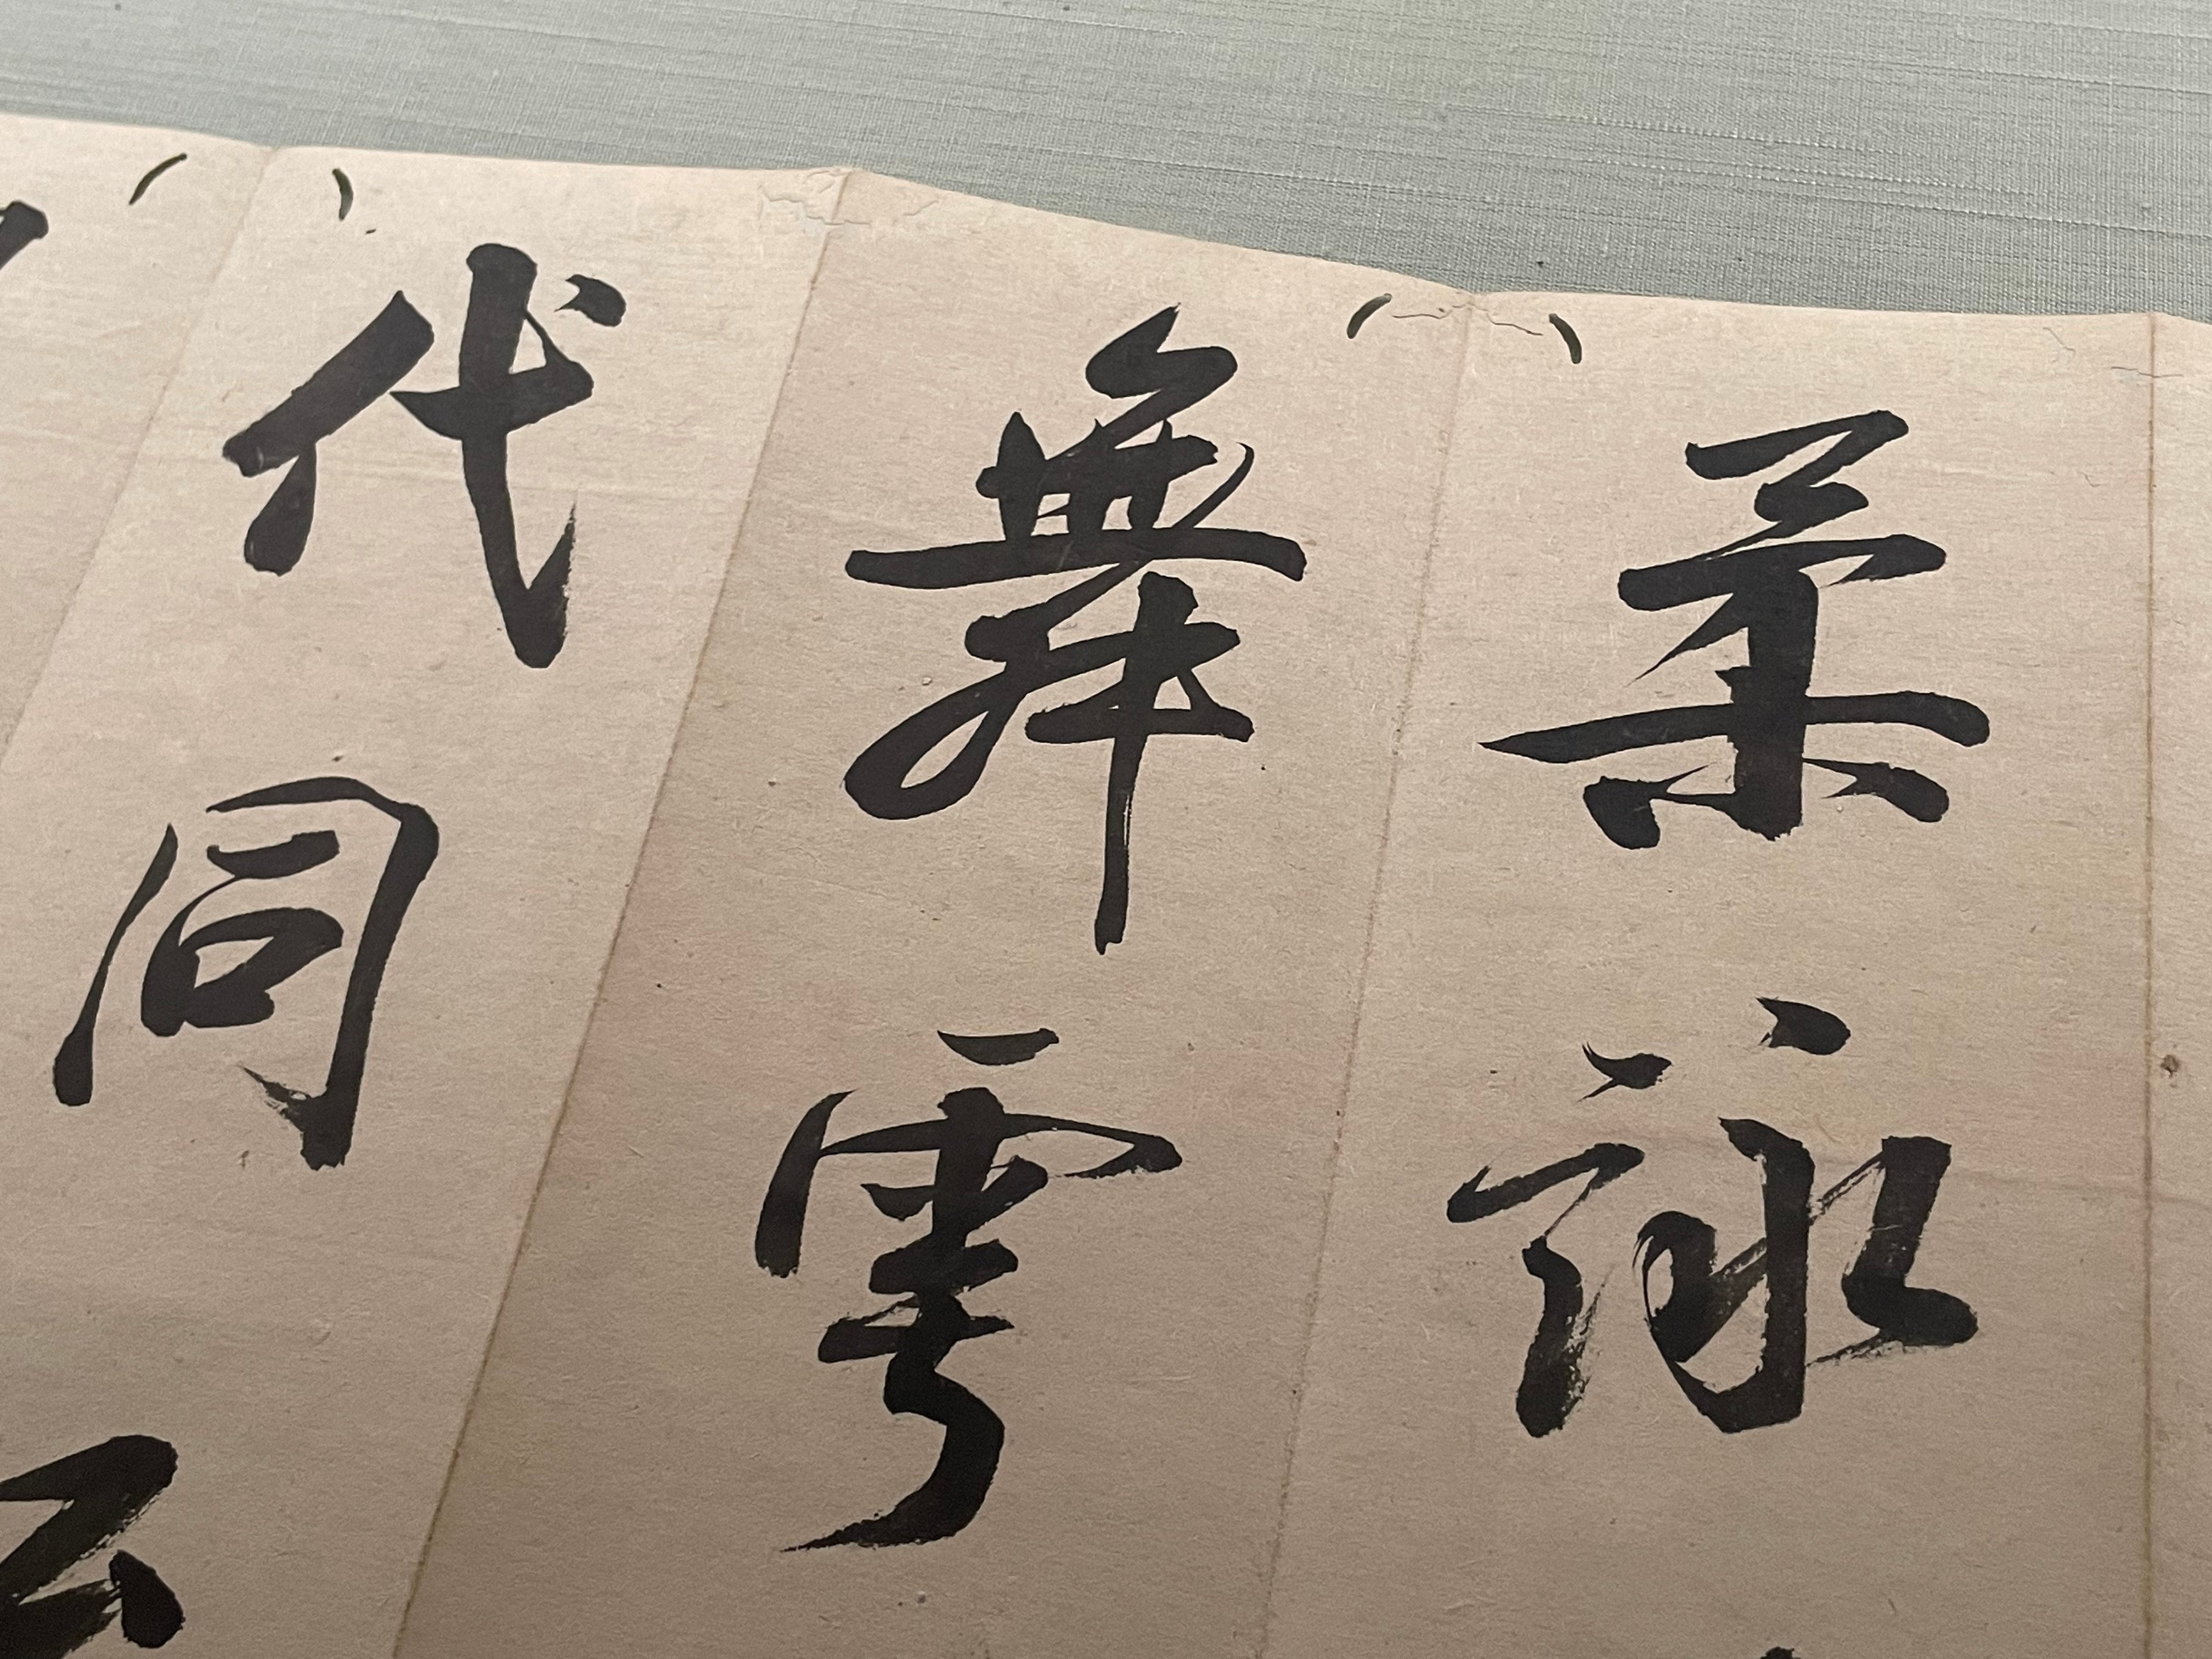 柔詠
舞雩
代同